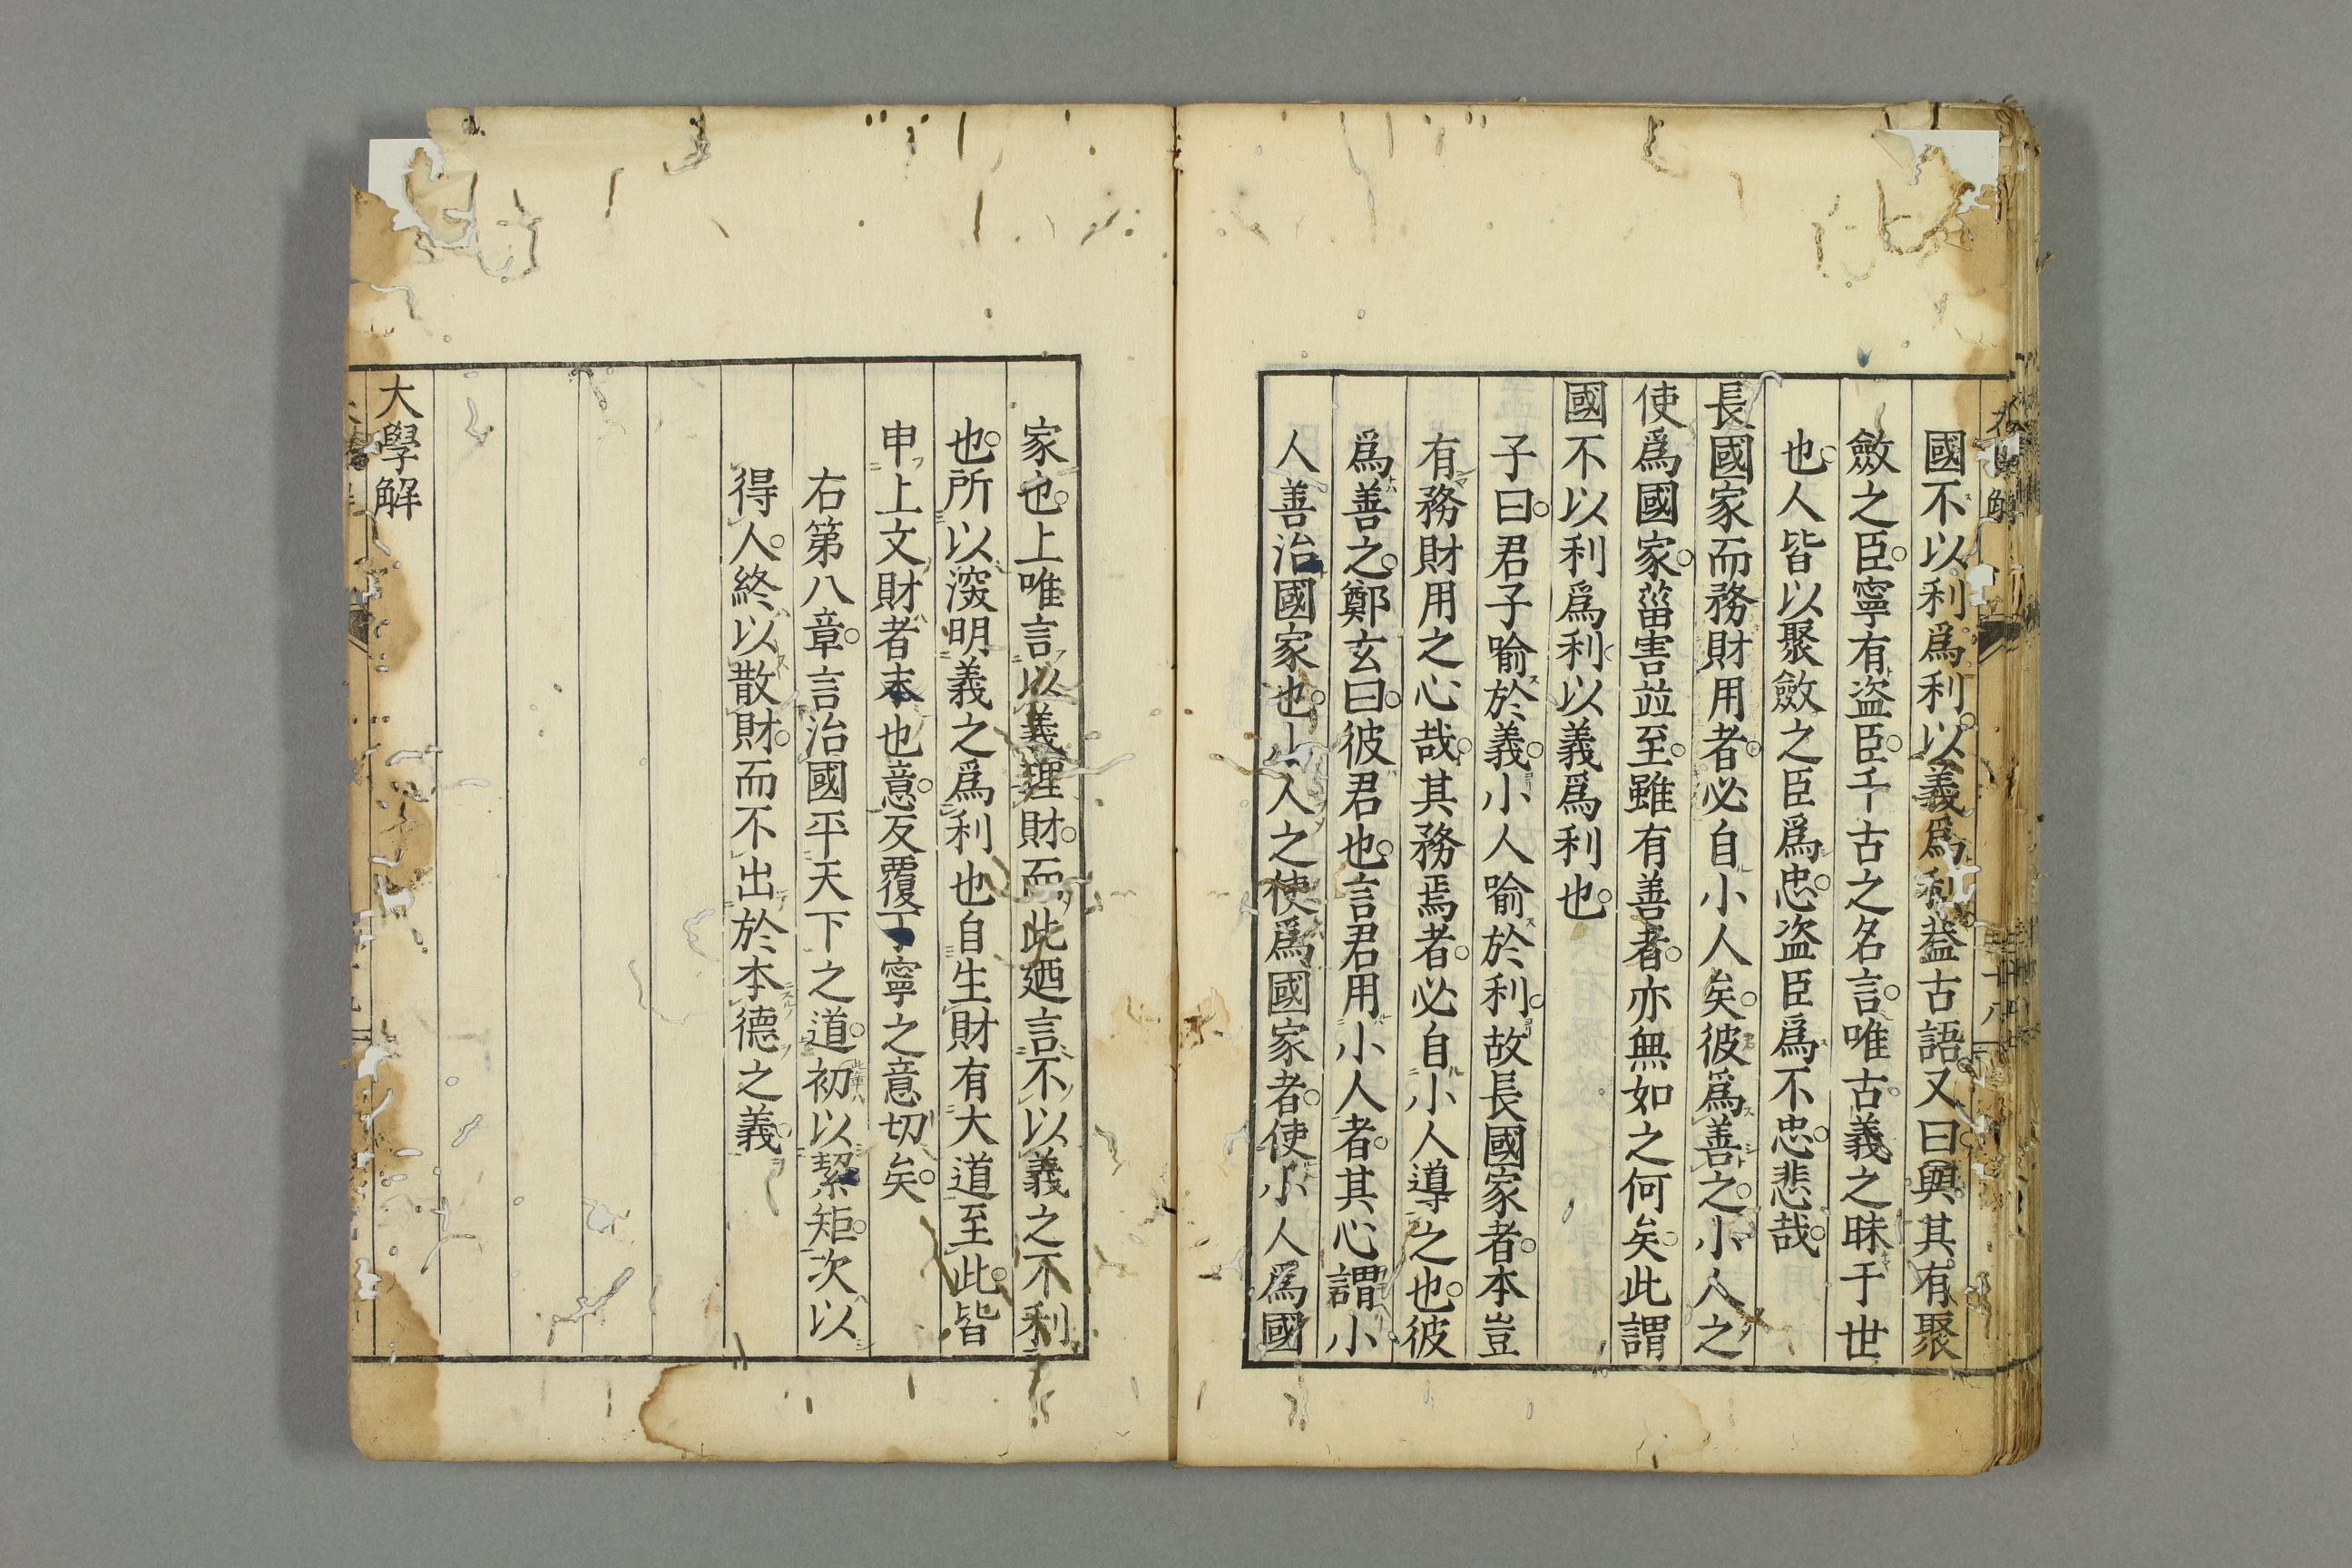 國不以利爲利以義爲利葢古語又曰與其有聚
斂之臣寧有盗臣千古之名言唯古義之昧于世
也人皆以聚斂之臣爲忠盗臣爲不忠悲哉
長國家而務財用者必自小人矣彼爲善之小人之
使爲國家菑害並至雖有善者亦無如之何矣此謂
國不以利爲利以義爲利也
子曰君子喻於義小人喻於利故長國家者本豈
有務財用之心哉其務焉者必自小人導之也彼
爲善之鄭玄曰彼君也言君用小人者其心謂小
人善治國家也小人之使爲國家者使小人爲國
家也上唯言以義理財而此廼言不以義之不利
也所以深明義之爲利也自生財有大道至此皆
申上文財者末也意反覆丁寧之意切矣
右第八章言治國平天下之道初以絜矩次以
得人終以散財而不出於本德之義
大學解